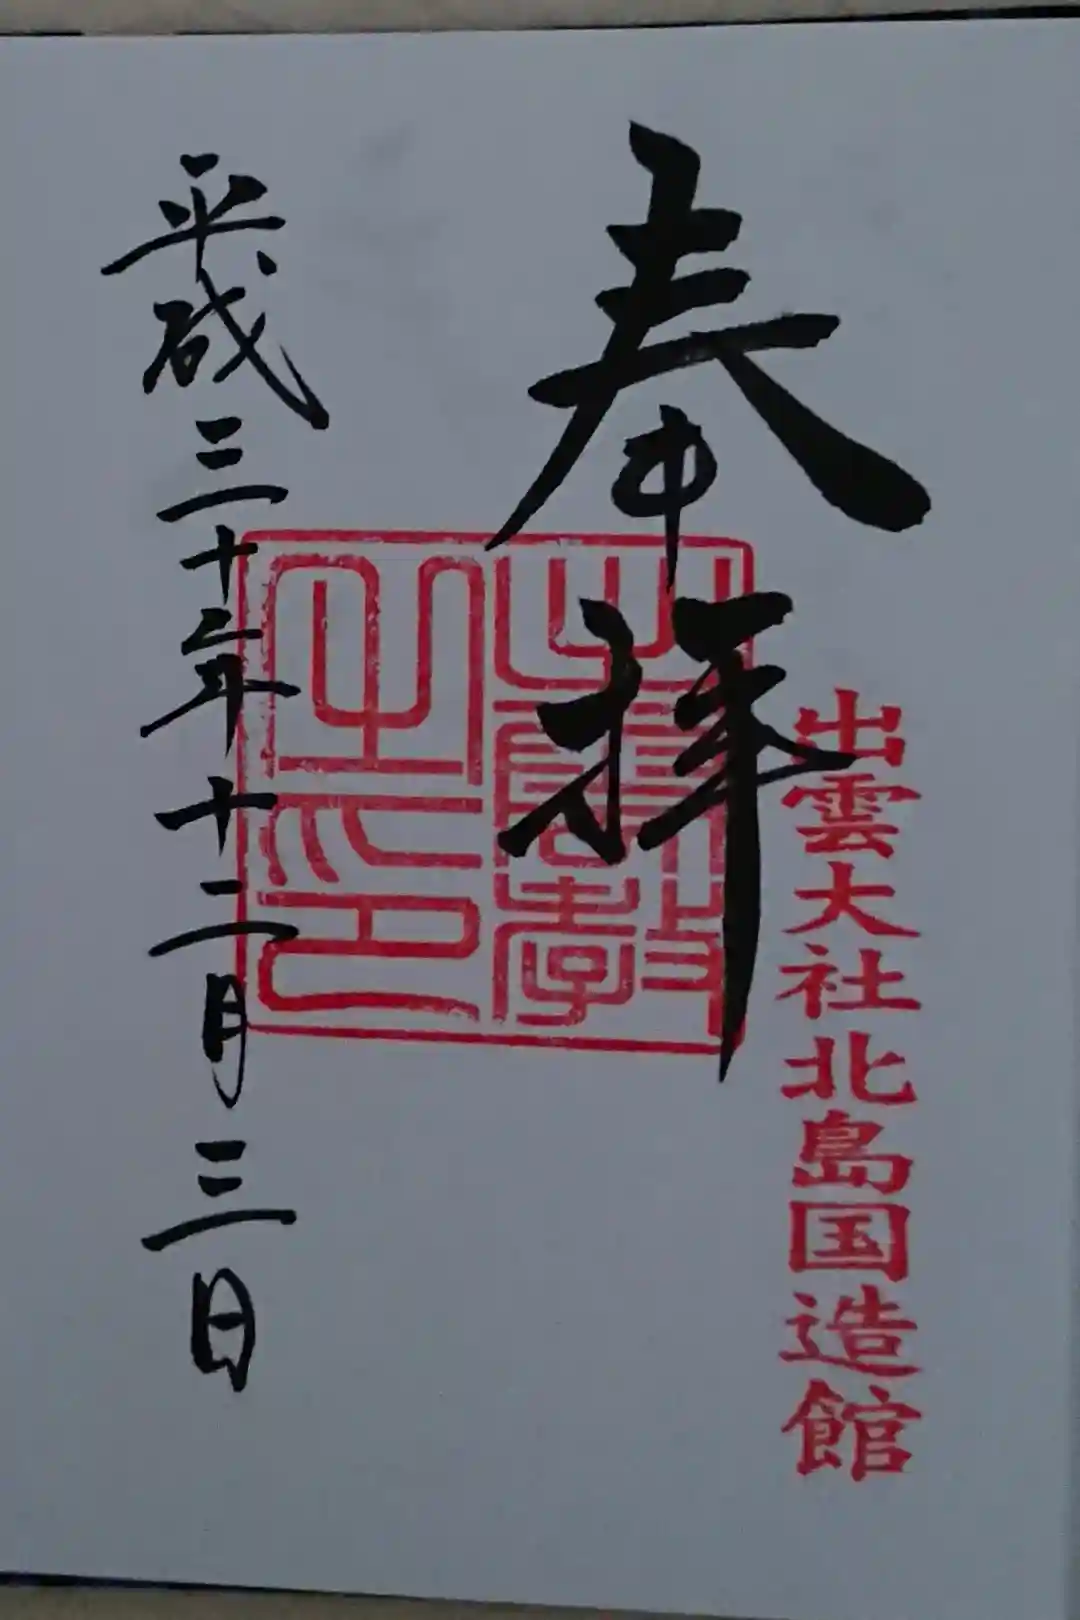 出雲大社北島国造館
奉拝
出雲教
之印
平成三十年十二月三日